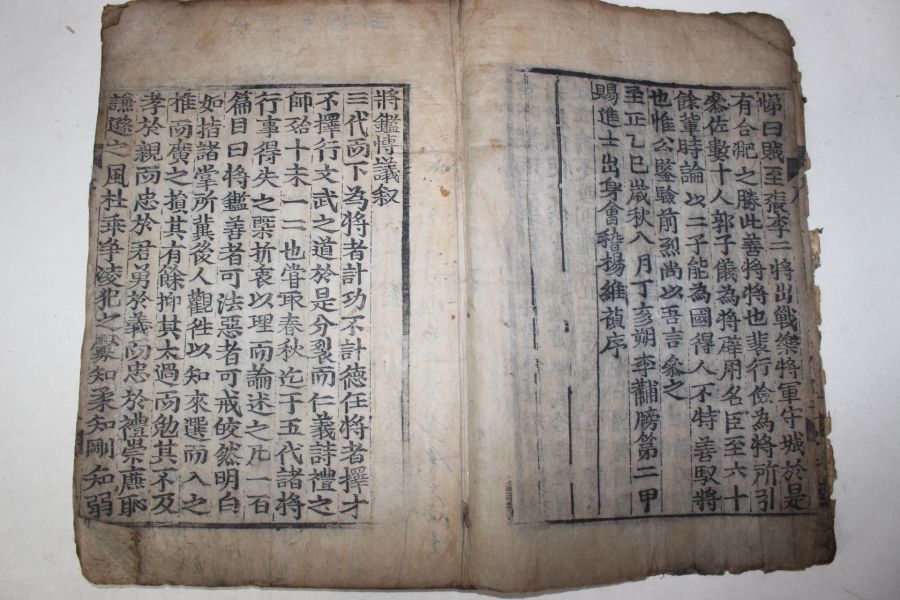 悌曰賊至張李二將出戰樂將軍守城於是
有合肥之勝此善將將也裴行儉為將所引
叅佐數十人郭子儀為將辟用名臣至六十
餘輩時論以二子能為國得人不特善馭將
也惟公鑒驗前烈尚以吾言叅之
至正乙巳歲秋八月丁亥朔李黼牓第二甲
賜進士出身會稽楊維禎序
將鑑博議叙
三代而下為將者計功不計德任將者擇才
不擇行文武之道於是分裂而仁義詩禮之
師殆十未一二也嘗取春秋迄于五代諸將
行事得失之槩折衷以理而論述之凡一百
篇目曰將鑑善者可法惡者可戒皎然明白
如指諸掌所冀後人觀徃以知來選而入之
推而廣之損其有餘抑其太過而勉其不及
孝於親而忠於君勇於義而忠於禮崇廉恥
謙遜之風杜乖爭凌犯之釁知柔知剛知弱